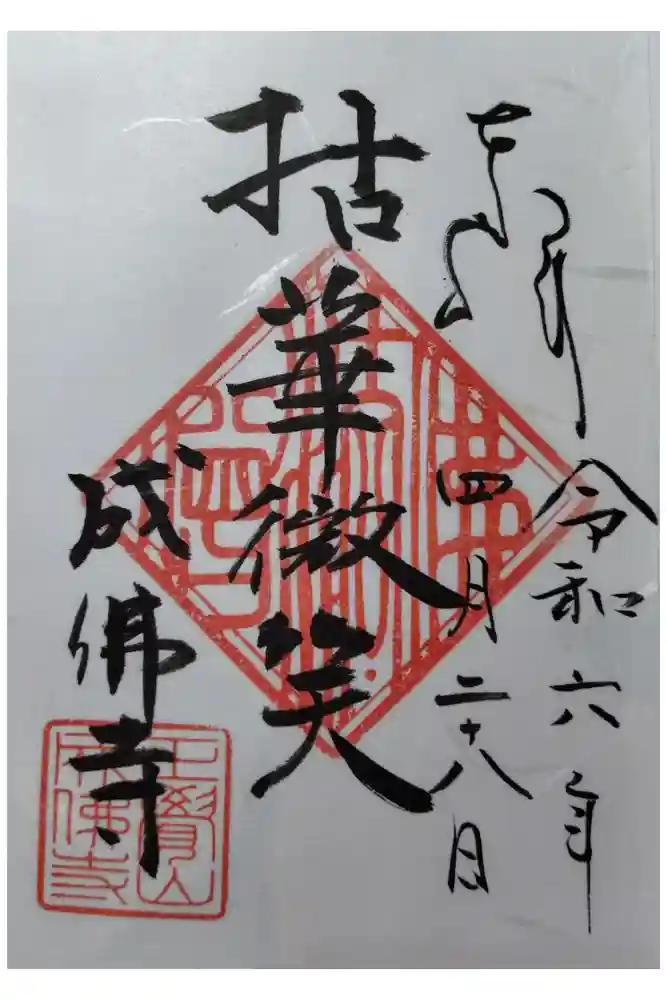 奉拝
令和六年
四月二十八日
拈華微笑
成佛寺
正覺山
成佛寺